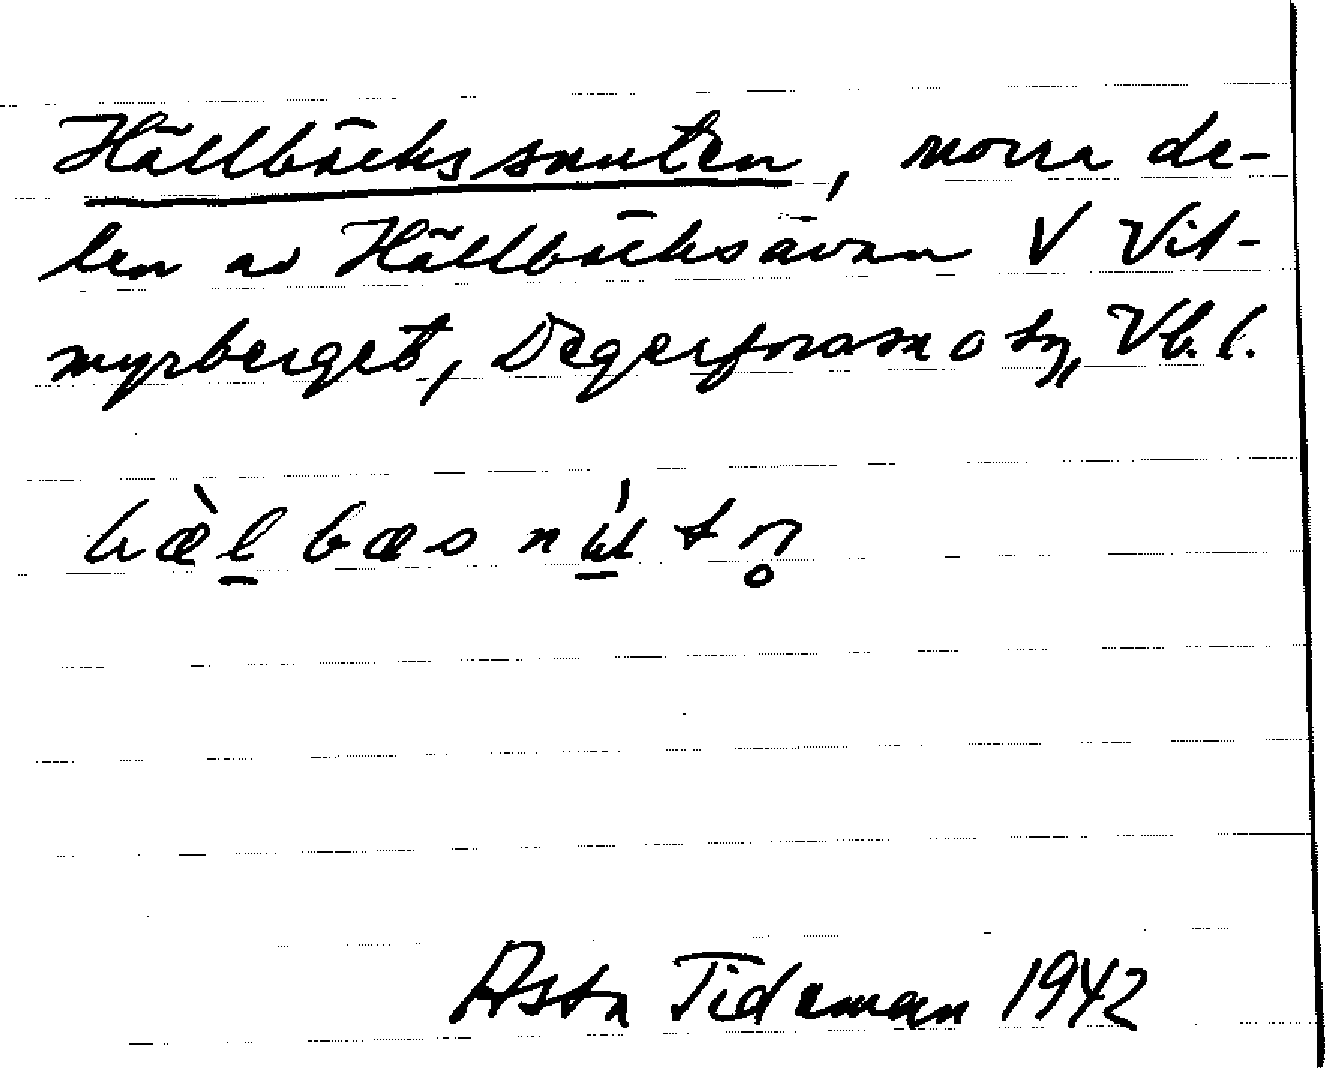 Hällbäckssnuten, norra de-
len av Hällbäcksavan V Vit-
myrberget, Degerfors sn o sg, Vb. l.
hæ̀l̲bæsnʉ̲́tn̥
Asta Tideman 1942